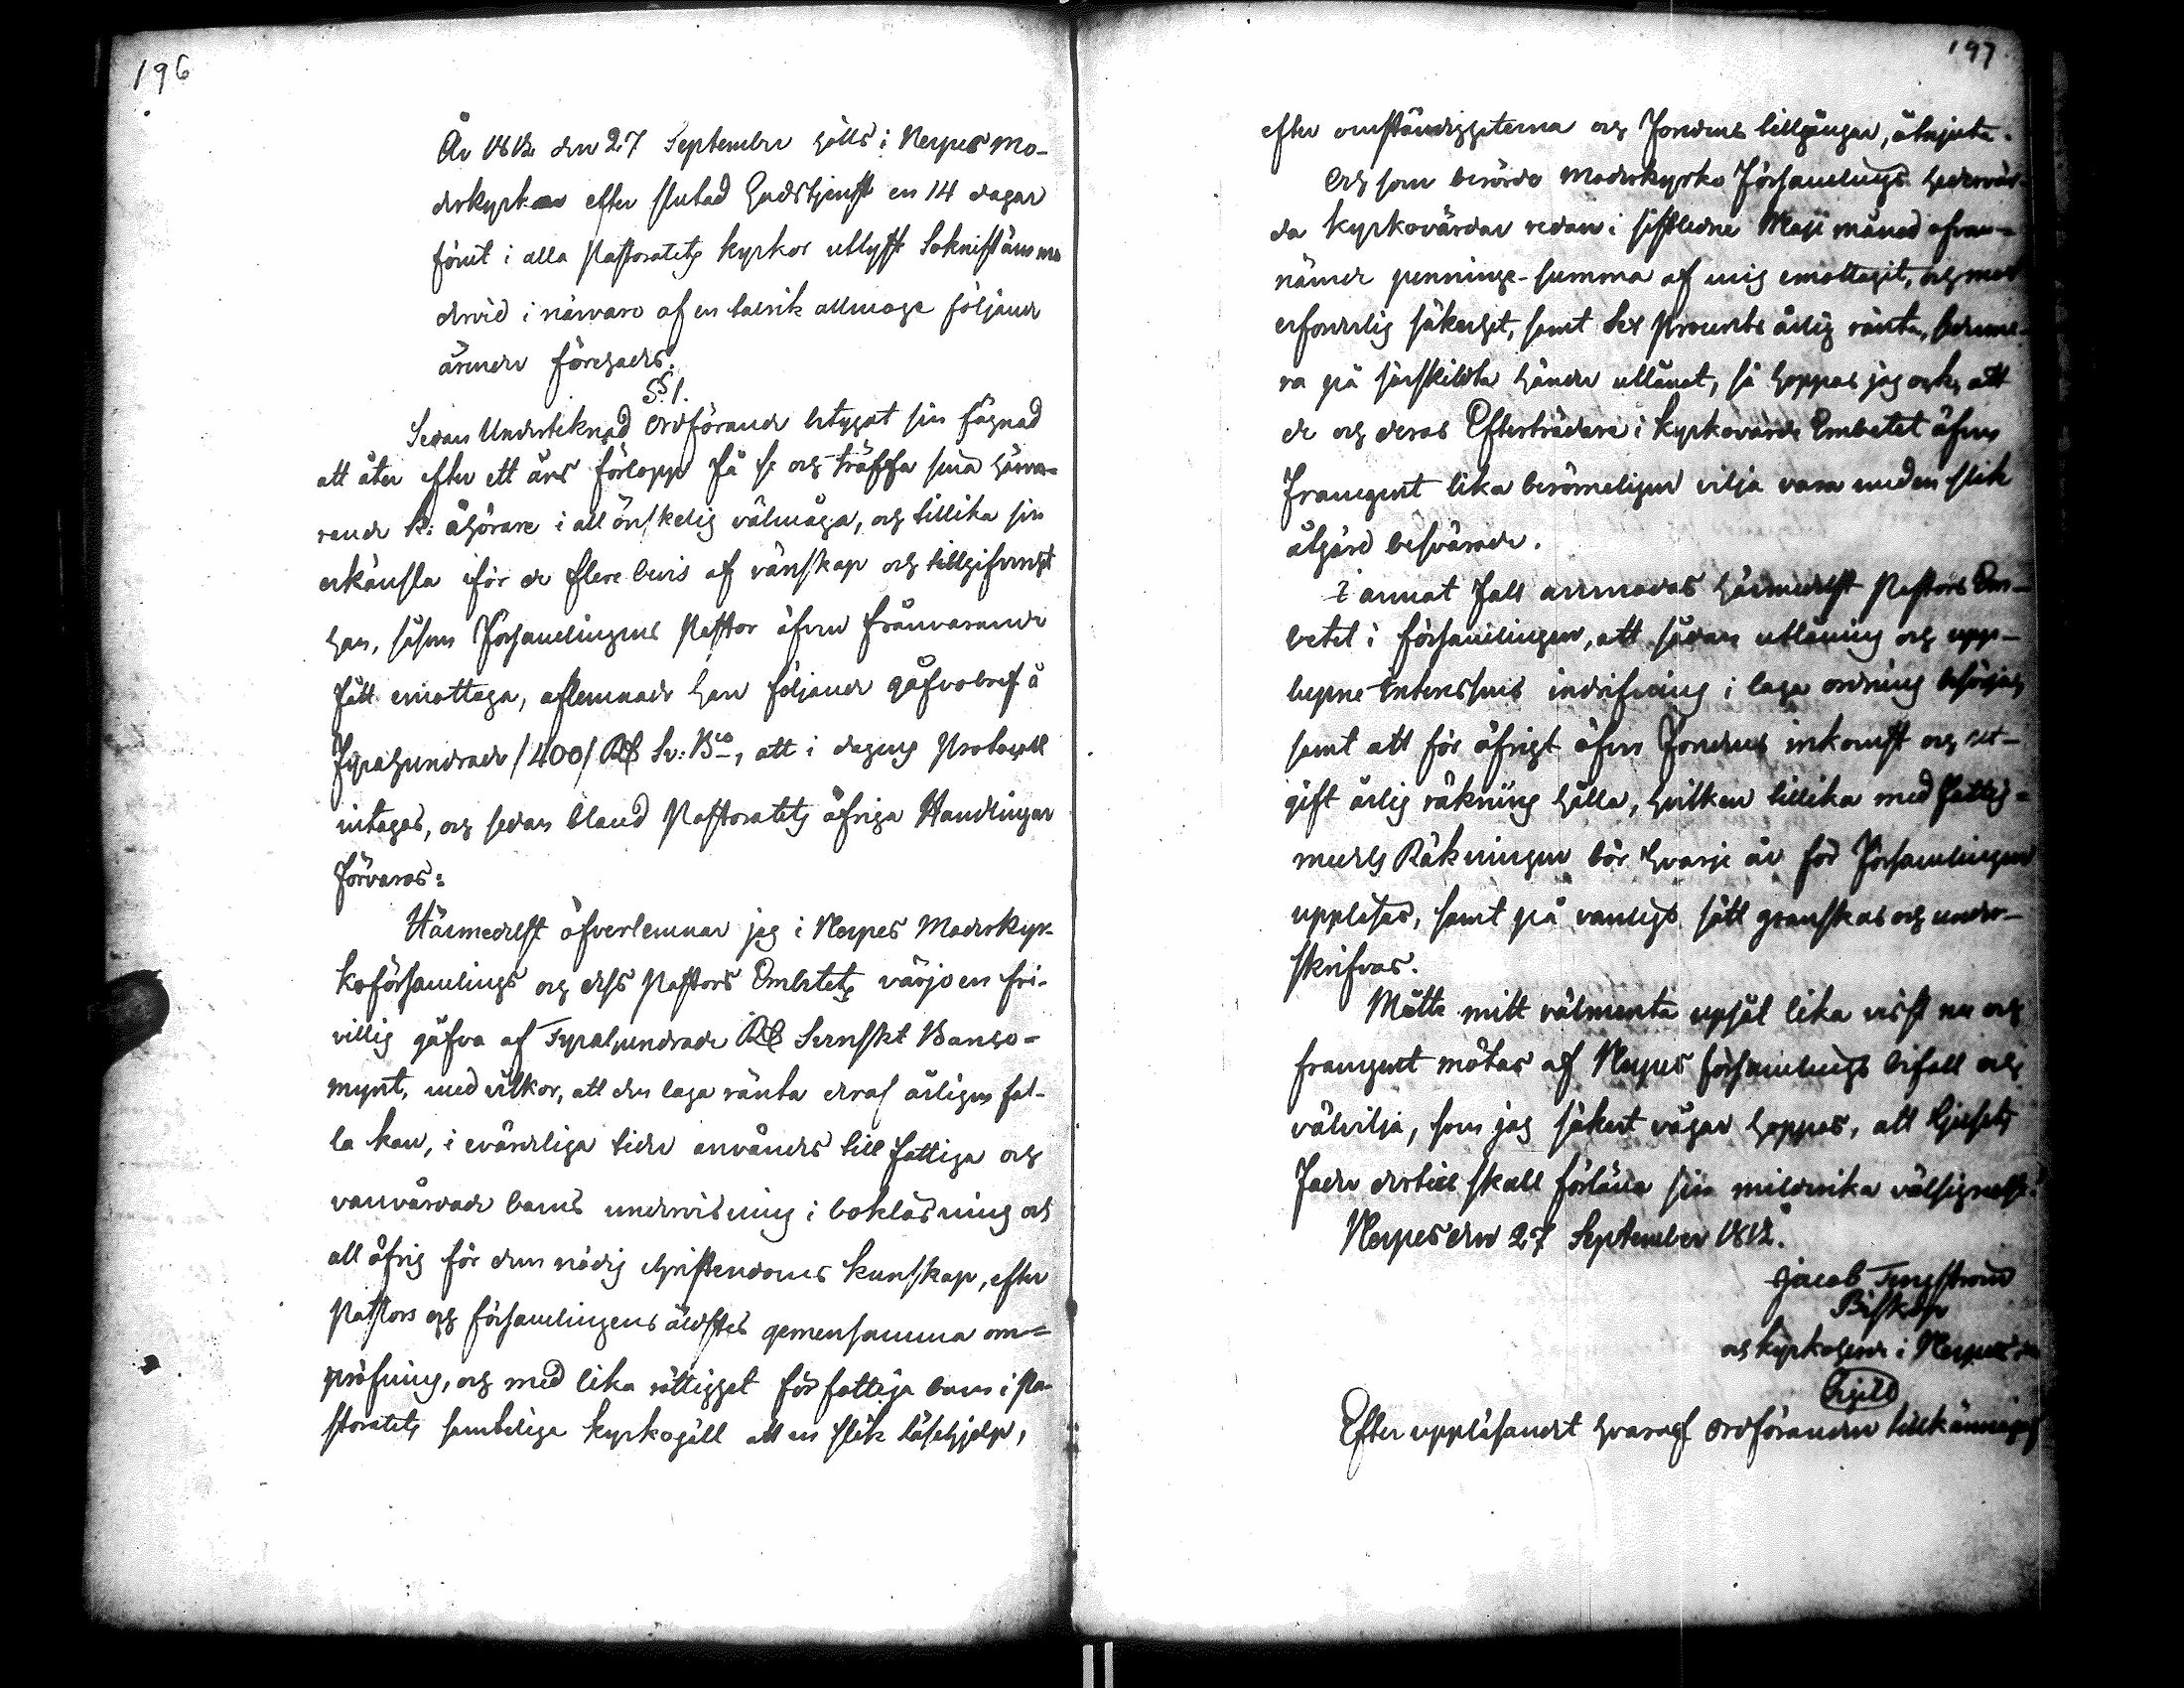 196
År 1812 den 27 September hölls i Nerpes mo-
derkyrkan efter slutad Gudstjenst en 14 dagar
förut i alla Pastoratets kyrkor utlyst Sokneståmma
dervid i närvaro af en talrik allmoge följande
ärender förehades:
§ 1.
Sedan Undertecknad Ordförande betygat sin fägnad
att åter efter ett års förlopp få se och träffa sina hörva-
rande k: åhörare i all önskelig välmåga, och tillika sin
erkänsla för de flere bevis af vänskap och tillgifvenhet
han, såsom Församlingens Pastor äfven frånvarande
fått emottaga, aflemnade han följande gåfvobref å
Fyrahundrade /400/ Rd Sv: Bco, att i dagens Protocoll
intagas, och sedan bland Pastoratets öfriga Handlingar
förvaras:
Härmedelst öfverlemnar jag i Nerpes Moderkyr-
koförsamlings och dess Pastors Embetets värjo en fri-
villig gåfva af Fyrahundrade Rd Svenskt Banco-
mynt, med vilkor, att den laga ränta deraf årligen fal-
la kan, i evärdliga tider användes till fattiga och
vanvårdade barns undervisning i bokläsning och
all öfrig för dem nödig Christendoms kunskap, efter
Pastors och församlingens äldstes gemensamma om-
pröfning, och med lika rättighet för fattiga barn i Pa-
storatets samteliga kyrkogäll att en slik läsehjelp,
197
efter omständigheterna och Fondens tillgångar, åtnjuta.
Och som berörde Moderkyrko Församlings hedervär-
da kyrkovärdar redan i sistledne Maji månad ofvan-
nämde penninge-summa af mig emottagit, och mot
erforderlig säkerhet, samt Sex Procents årlig ränta, derme-
ra på särskildta händer utlånat, så hoppas jag ock, att
de och deras Efterträdare i Kyrkovärde Embetet äfven
framgent lika berömligen vilja vara med en slik
åtgärd besvärade.
I annat fall anmodas härmedelst Pastors Em-
betet i församlingen, att sådan utlåning och upp-
lupne Interessens indrifning i laga ordning besörja,
samt att för öfrigt öfver Fondens inkomst och ut-
gift årlig räkning hålla, hvilken tillika med Fattig-
medels Räkningen bör hvarje år för Församlingen
uppläsas, samt på vanligt sätt granskas och under-
skrifvas.
Måtte mitt välmenta upsåt lika visst nu och
framgent mötas af Nerpes församlings bifall och
välvilja, som jag säkert vågar hoppas, att Ljusets
Fader dertill skall förläna sin mildrika välsignelse.
Nerpes den 27 September 1812.
Jacob Tengström
Biskop
och kyrkoherde i Nerpes
Efter uppläsandet hvaraf Ordföranden tillkännagaf